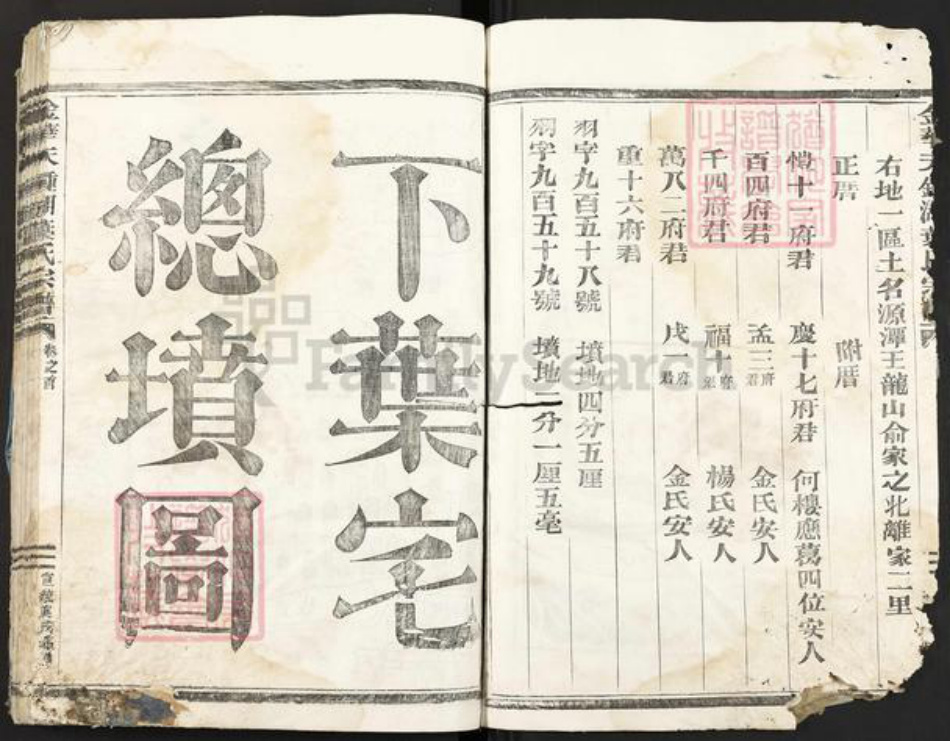 右地一區土名源潭王龍山俞家之北離家二里
正厝 附厝
十一府君 慶十七府君 何樓應葛四位安人
百四府君 孟三府君 金氏安人
千四府君 福十府君 楊氏安人
萬八二府君 戌一府君 金氏安人
重十六府君
羽字九百五十八號 墳地四分五厘
羽字九百五十九號 墳地二分一厘五毫
下葉宅
總墳圖
卷之首
FamilySearch